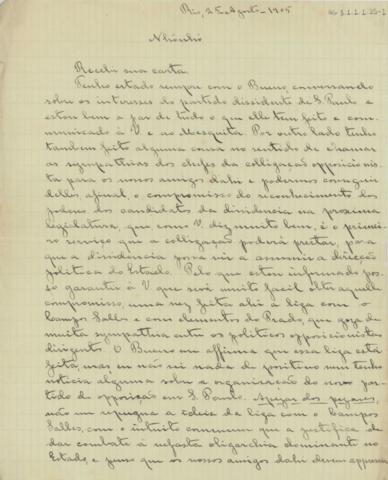 Rio, 25 Agosto - 1905
Nhônhô
Recebi sua carta.
Tenho estado sempre com o Bueno, conversando
sobre os interesses do partido dissidente de S. Paulo e
estou bem a par de tudo o que elle tem feito e com-
municado á V. e ao Mesquita. Por outro lado tenho
tambem feito alguma cousa no sentido de chamar
as sympathias dos chefes da colligação opposicionis-
ta para os nossos amigos dahi e podermos conseguir
delles, afinal, o compromisso do reconhecimento dos
poderes dos candidatos da dissidencia na proxima
legislatura, que como V. diz muito bem, é o primei-
ro serviço que a colligação poderá prestar, para
que a dissidencia possa vir a assumir a direcção
politica do Estado. Pelo que estou informado pos-
so garantir á V que será muito facil obter aquelle
compromisso, uma vez feita ahi a liga com o
Campos Salles e com elementos do Prado, que goza de
muita sympathia entre os politicos opposicionistas
dirigentes. O Bueno me affirma que essa liga está
feita, mas eu não sei nada de positivo nem tenho
noticia alguma sobre a organisação do novo par-
tido de opposição em S. Paulo. Apezar dos pezares,
não me repugna a ideia da liga com o Campos
Salles, com o intuito commum que a justifica de
dar combate á nefasta oligarchia dominante no
Estado, e penso que os nossos amigos dahi devem